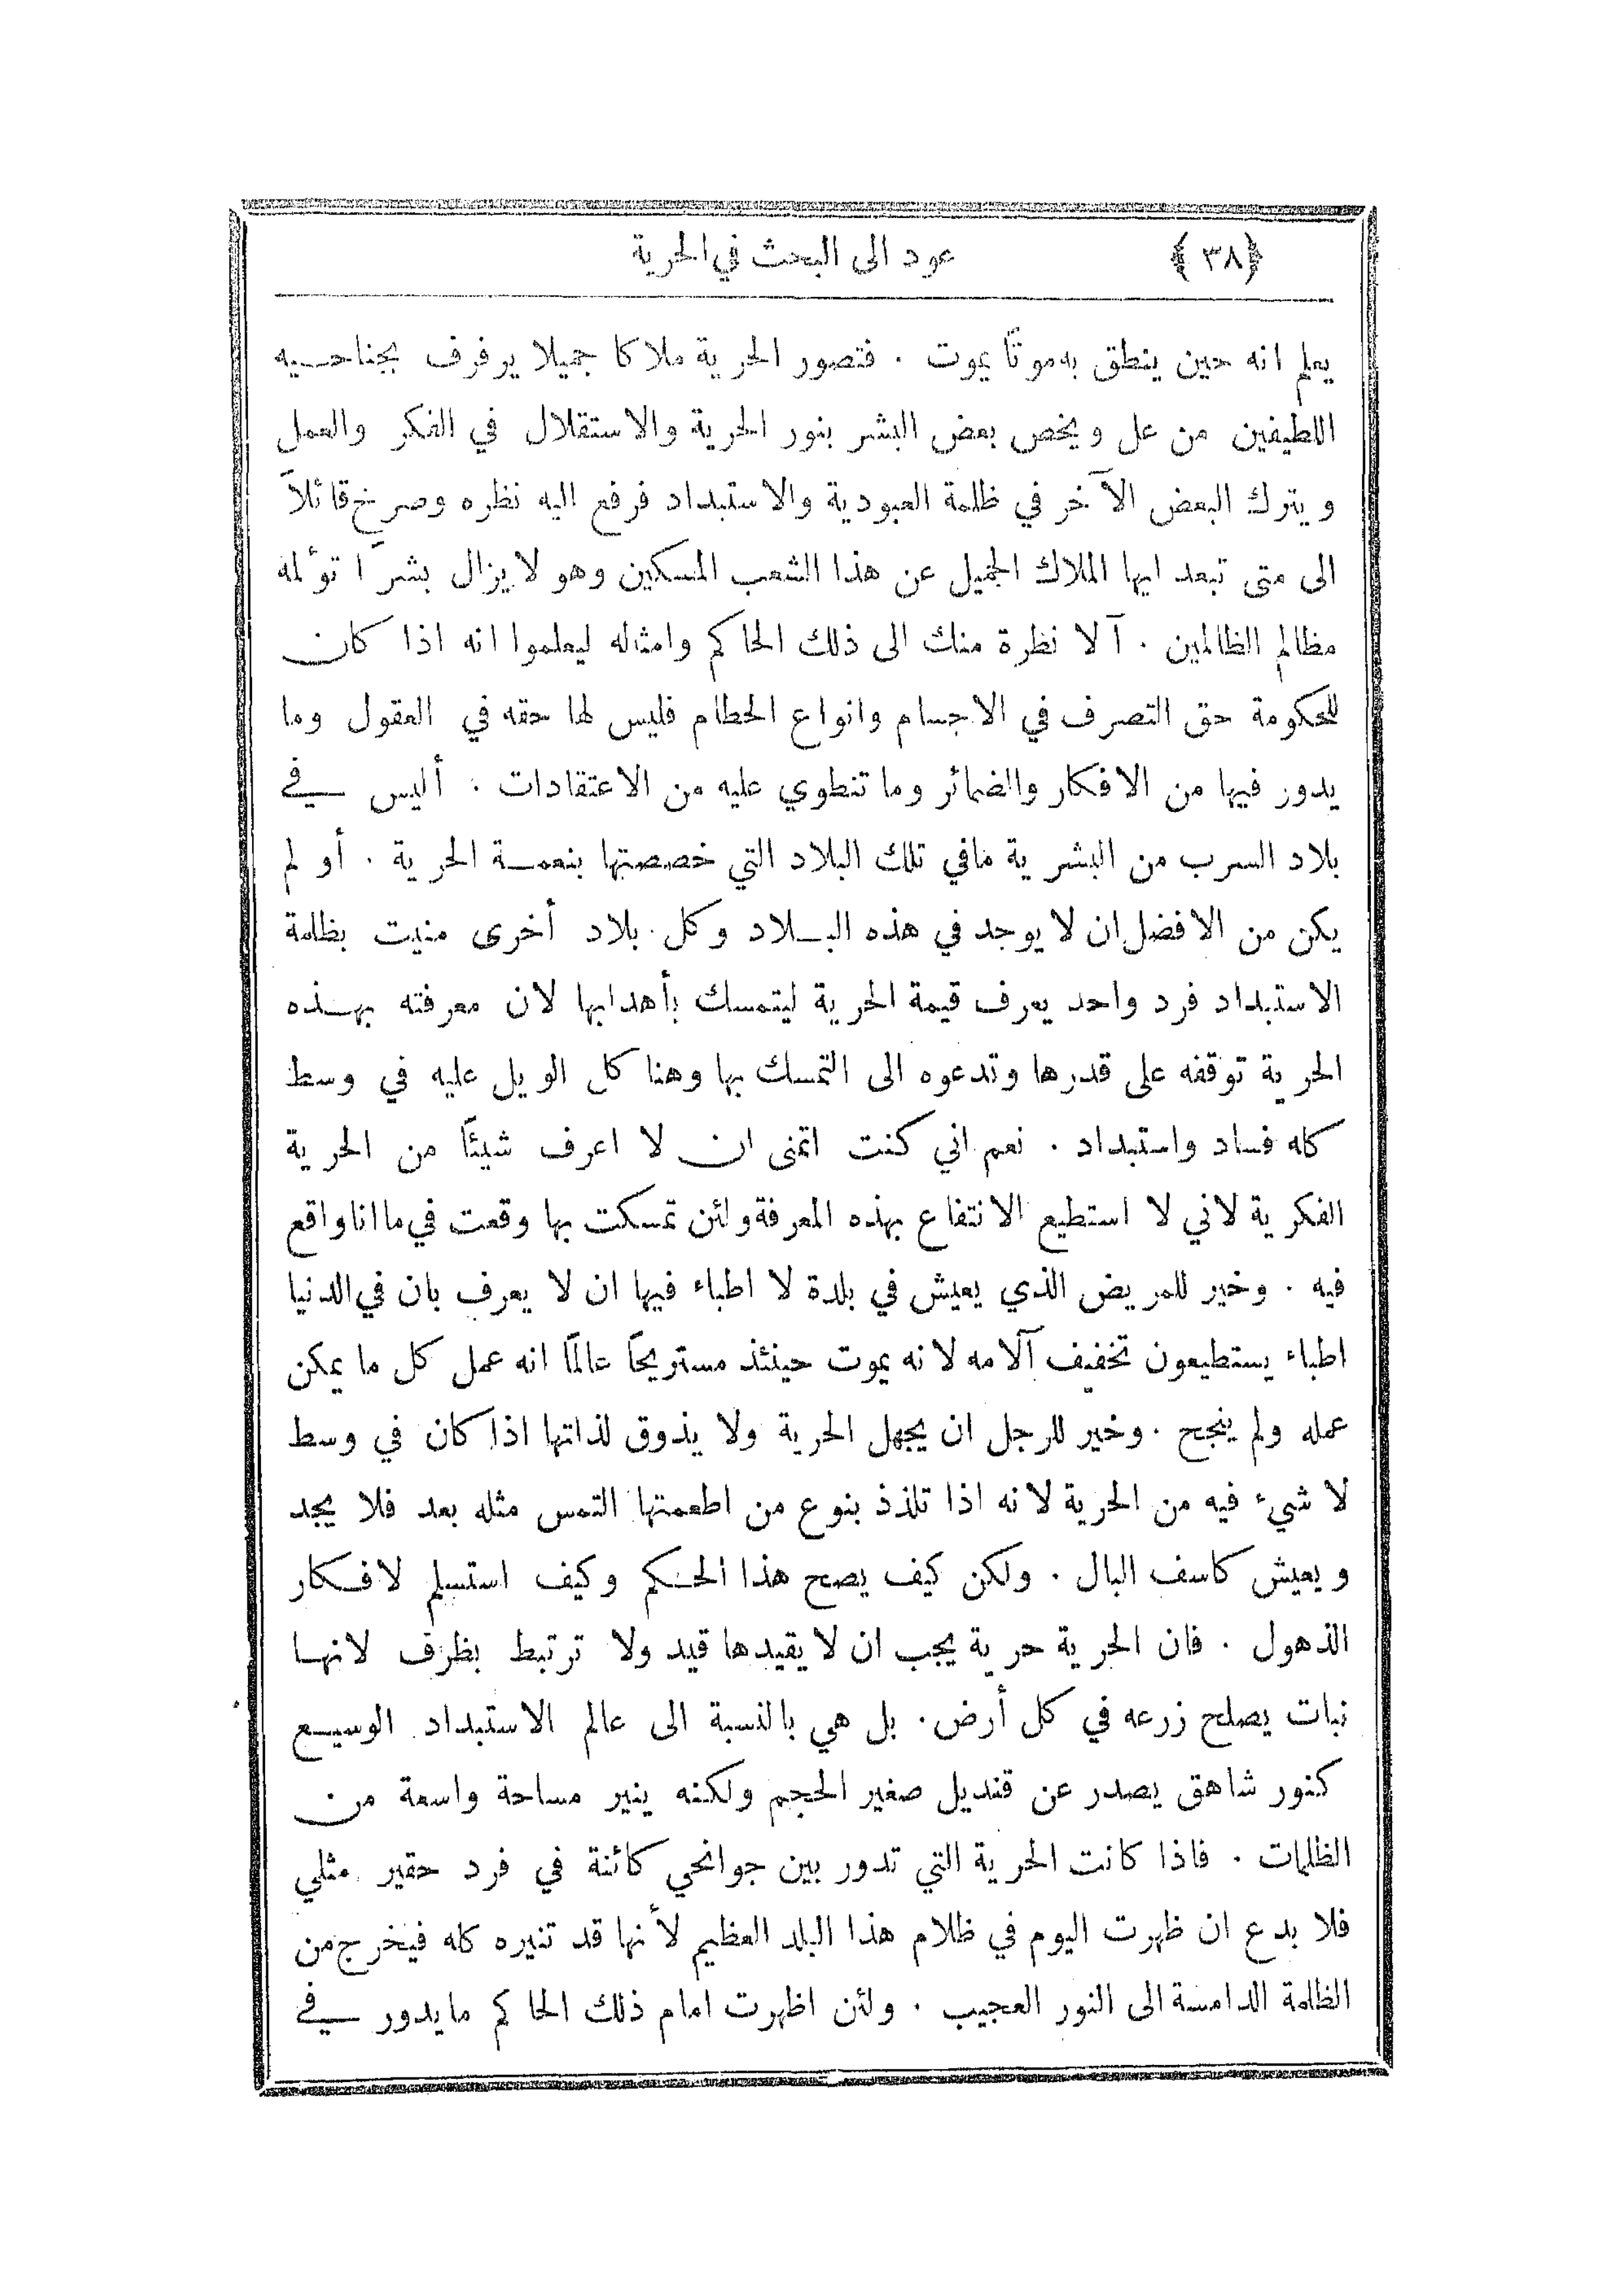 ﴿٣٨﴾ عود الى البحث في الحرية
يعلم انه حين ينطق به موتًا يموت . فتصور الحرية ملاكا جميلا يرفرف بجناحيه
اللطيفين من عل ويخص بعض البشر بنور الحرية والاستقلال في الفكر والعمل
ويترك البعض الآخر في ظلمة العبودية والاستبداد فرفع اليه نظره وصرخ قائلاً
الى متى تبعد ايها الملاك الجميل عن هذا الشعب المسكين وهو لا يزال بشرًا تؤلمه
مظالم الظالمين . آلا نظرة منك الى ذلك الحاكم وامثاله ليعلموا انه اذا كان
للحكومة حق التصرف في الاجسام وانواع الحطام فليس لها حقه في العقول وما
يدور فيها من الافكار والضمائر وما تنطوي عليه من الاعتقادات . أليس في
بلاد السرب من البشرية مافي تلك البلاد التي خصصتها بنعمة الحرية . أو لم
يكن من الافضل ان لا يوجد في هذه البلاد وكل بلاد أخرى منيت بظلمة
الاستبداد فرد واحد يعرف قيمة الحرية ليتمسك بأهدابها لان معرفته بهذه
الحرية توقفه على قدرها وتدعوه الى التمسك بها وهنا كل الويل عليه في وسط
كله فساد واستبداد . نعم اني كنت اتمنى ان لا اعرف شيئًا من الحرية
الفكرية لاني لا استطيع الانتفاع بهذه المعرفة ولئن تمسكت بها وقعت في ما انا واقع
فيه . وخير للمريض الذي يعيش في بلدة لا اطباء فيها ان لا يعرف بان في الدنيا
اطباء يستطيعون تخفيف آلامه لانه يموت حينئذ مستريحًا عالمًا انه عمل كل ما يمكن
عمله ولم ينجح . وخير للرجل ان يجهل الحرية ولا يذوق لذاتها اذا كان في وسط
لا شيء فيه من الحرية لانه اذا تلذذ بنوع من اطعمتها التمس مثله بعد فلا يجد
ويعيش كاسف البال . ولكن كيف يصح هذا الحكم وكيف استسلم لافكار
الذهول . فان الحرية حرية يجب ان لا يقيدها قيد ولا ترتبط بظرف لانها
نبات يصلح زرعه في كل أرض . بل هي بالنسبة الى عالم الاستبداد الوسيع
كنور شاهق يصدر عن قنديل صغير الحجم ولكنه ينير مساحة واسعة من
الظلمات . فاذا كانت الحرية التي تدور بين جوانحي كائنة في فرد حقير مثلي
فلا بدع ان ظهرت اليوم في ظلام هذا البلد العظيم لأنها قد تنيره كله فيخرج من
الظلمة الدامسة الى النور العجيب . ولئن اظهرت امام ذلك الحاكم مايدور في